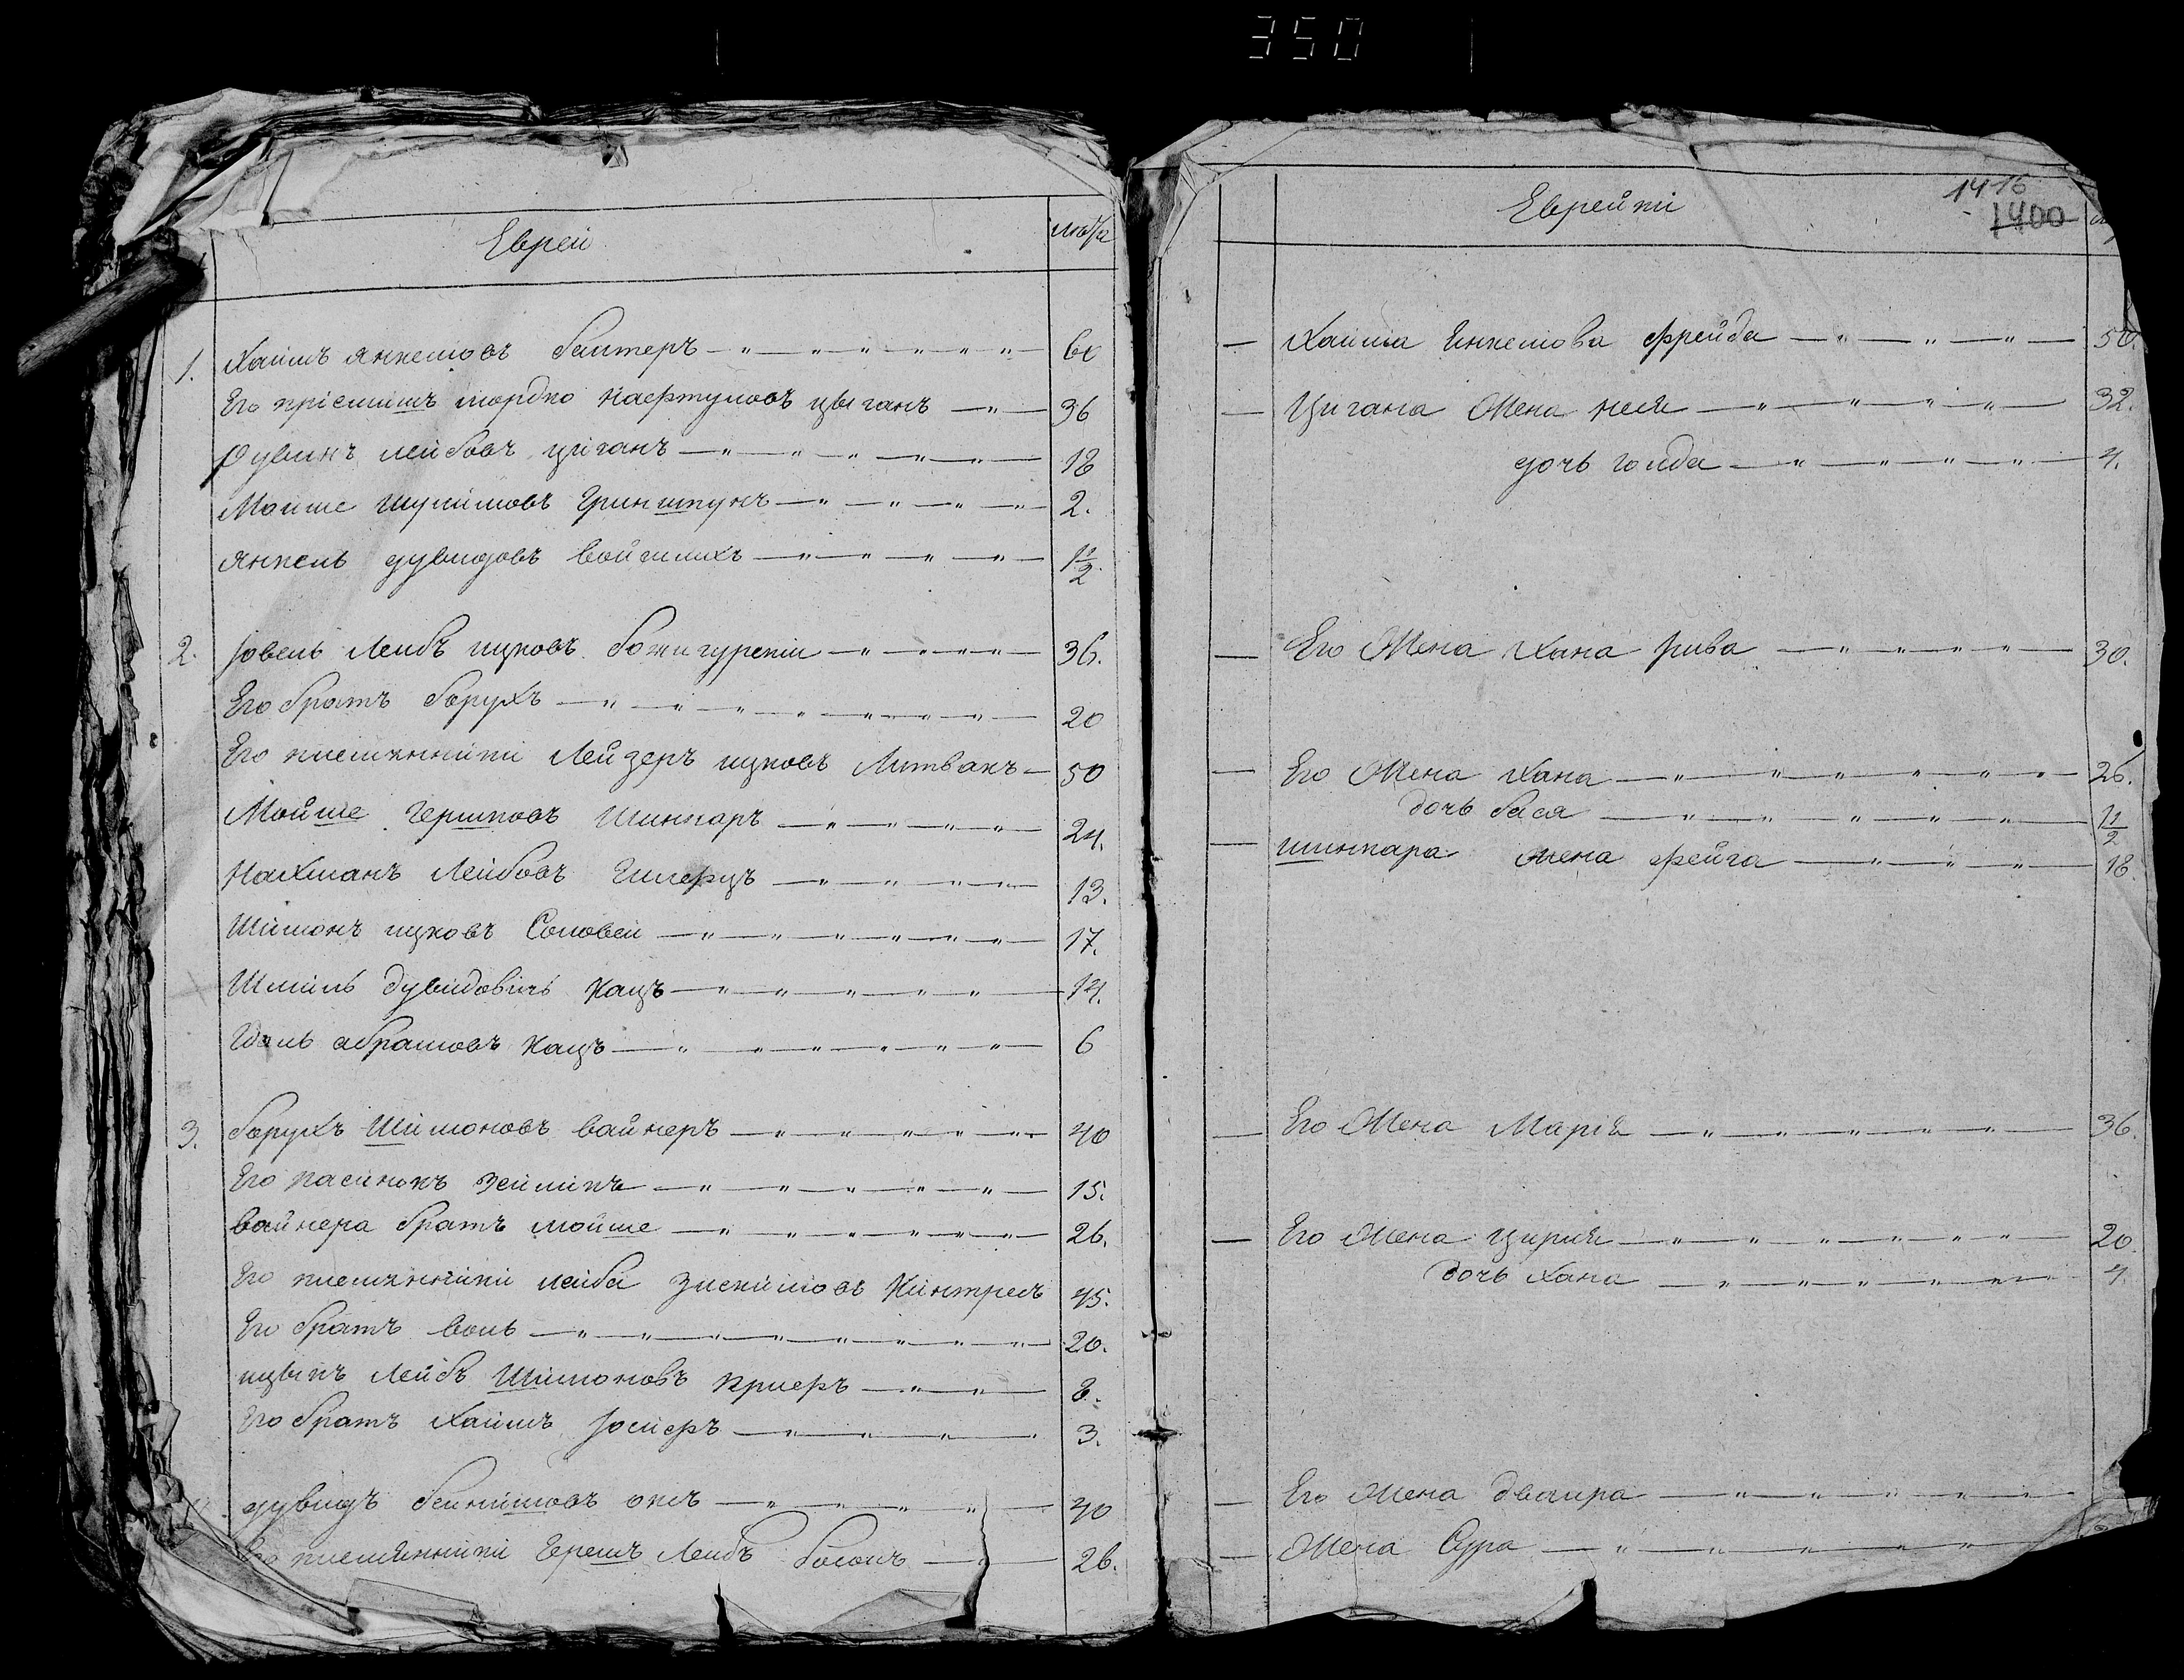 350
Еврей
лѣта
1. Хаимъ Янкелювъ 60
Его пріемишъ Мордко Нафтуловъ Цыганъ 36
Дувинъ Лейбовъ Циганъ 18
Мойше Шулимовъ Гринштунъ 2.
Янкель Дувидовъ 1 1/2
2. Іовель Лейбъ Ицковъ 36.
Его братъ Борухъ 20
Его племянники Лейзеръ Ицковъ Литвакъ 50
Мойше Гершковъ Шинкаръ 24.
Нахманъ Лейбовъ 13.
Шимонъ Ицковъ Соловей 17.
Шмиль Дувидовичъ Кацъ 14.
Абрамовъ Кацъ 6
3. Борухъ Шимоновъ Вайнеръ 40
Его пасинокъ Зейликъ 15.
Вайнера братъ Мойше 26.
Его племянники Лейба 45.
Его братъ Воль 20.
Ицыкъ Лейбъ Шимоновъ 8.
Его братъ Хаимъ 3.
Дувидъ 40
Его племянники Гершъ Лейбъ 26.
Еврейки
1416
1400
— Хаима Янкелюва Фрейда 50.
— Цигана жена Неся 32.
дочь Голда 4.
— Его жена Хана Рива 30.
— Его жена Хана 26.
дочь Бася 1 1/2
— Шинкара жена Фейга 18.
— Его жена Марія 36.
— Его жена Цирля 20.
дочь Хана 4
— Его жена Двойра
— жена Сура